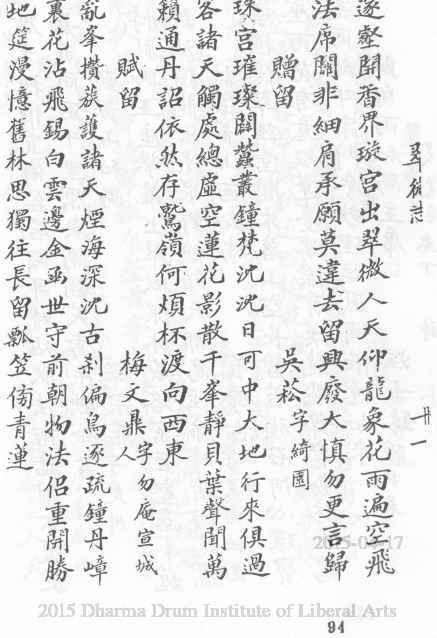 逐壑開香界璇宮出翠微人天仰龍象花雨遍空飛
法席關非細肩承願莫違去留興廢大慎勿更言歸
贈留 吳菘字綺園
珠宮璀璨闢蠶叢鐘梵沈沈日可中大地行來俱過
客諸天觸處總虛空蓮花影散千峯靜貝葉聲聞萬
籟通丹詔依然存鷲嶺何煩杯渡向西東
賦留 梅文鼎字勿庵宣城人
亂峯攢蔟護諸天煙海深沈古剎偏鳥逐疏鐘丹嶂
裏花沾飛錫白雲邊金函世守前朝物法侶重開勝
地筵漫憶舊林思獨往長留瓢笠傍青蓮
卅一
94
2015-04-17
2015 Dharma Drum Institute of Liberal Arts